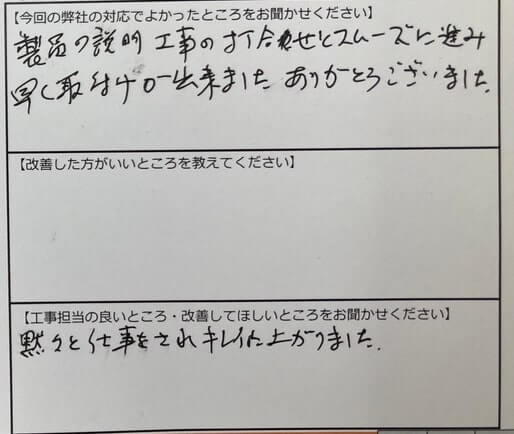 【今回の弊社の対応でよかったところをお聞かせください】
製品の説明 工事の打合せとスムーズに進み
早く取付が出来ました ありがとうございました.
【改善した方がいいところを教えてください】
【工事担当の良いところ・改善してほしいところをお聞かせください】
黙々と仕事をされキレイに上がりました.